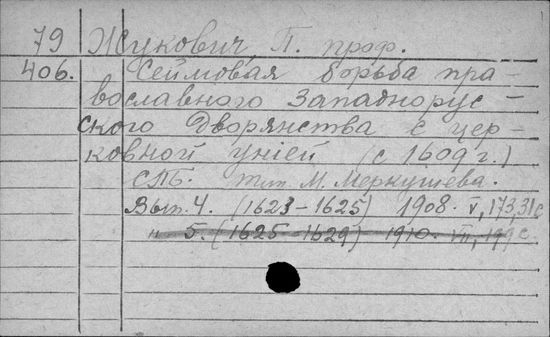 79 Жукович, П. проф.
406. Сеймовая борьба пра-
вославного Западнорус-
ского дворянства с цер-
ковной уніей (с 1609 г.)
СПБ. тип. М. Меркушева.
Вып. 4. (1623-1625) 1908. V, 173, 31 с
" 5. (1625-1629) 1910. VII, 199 с.